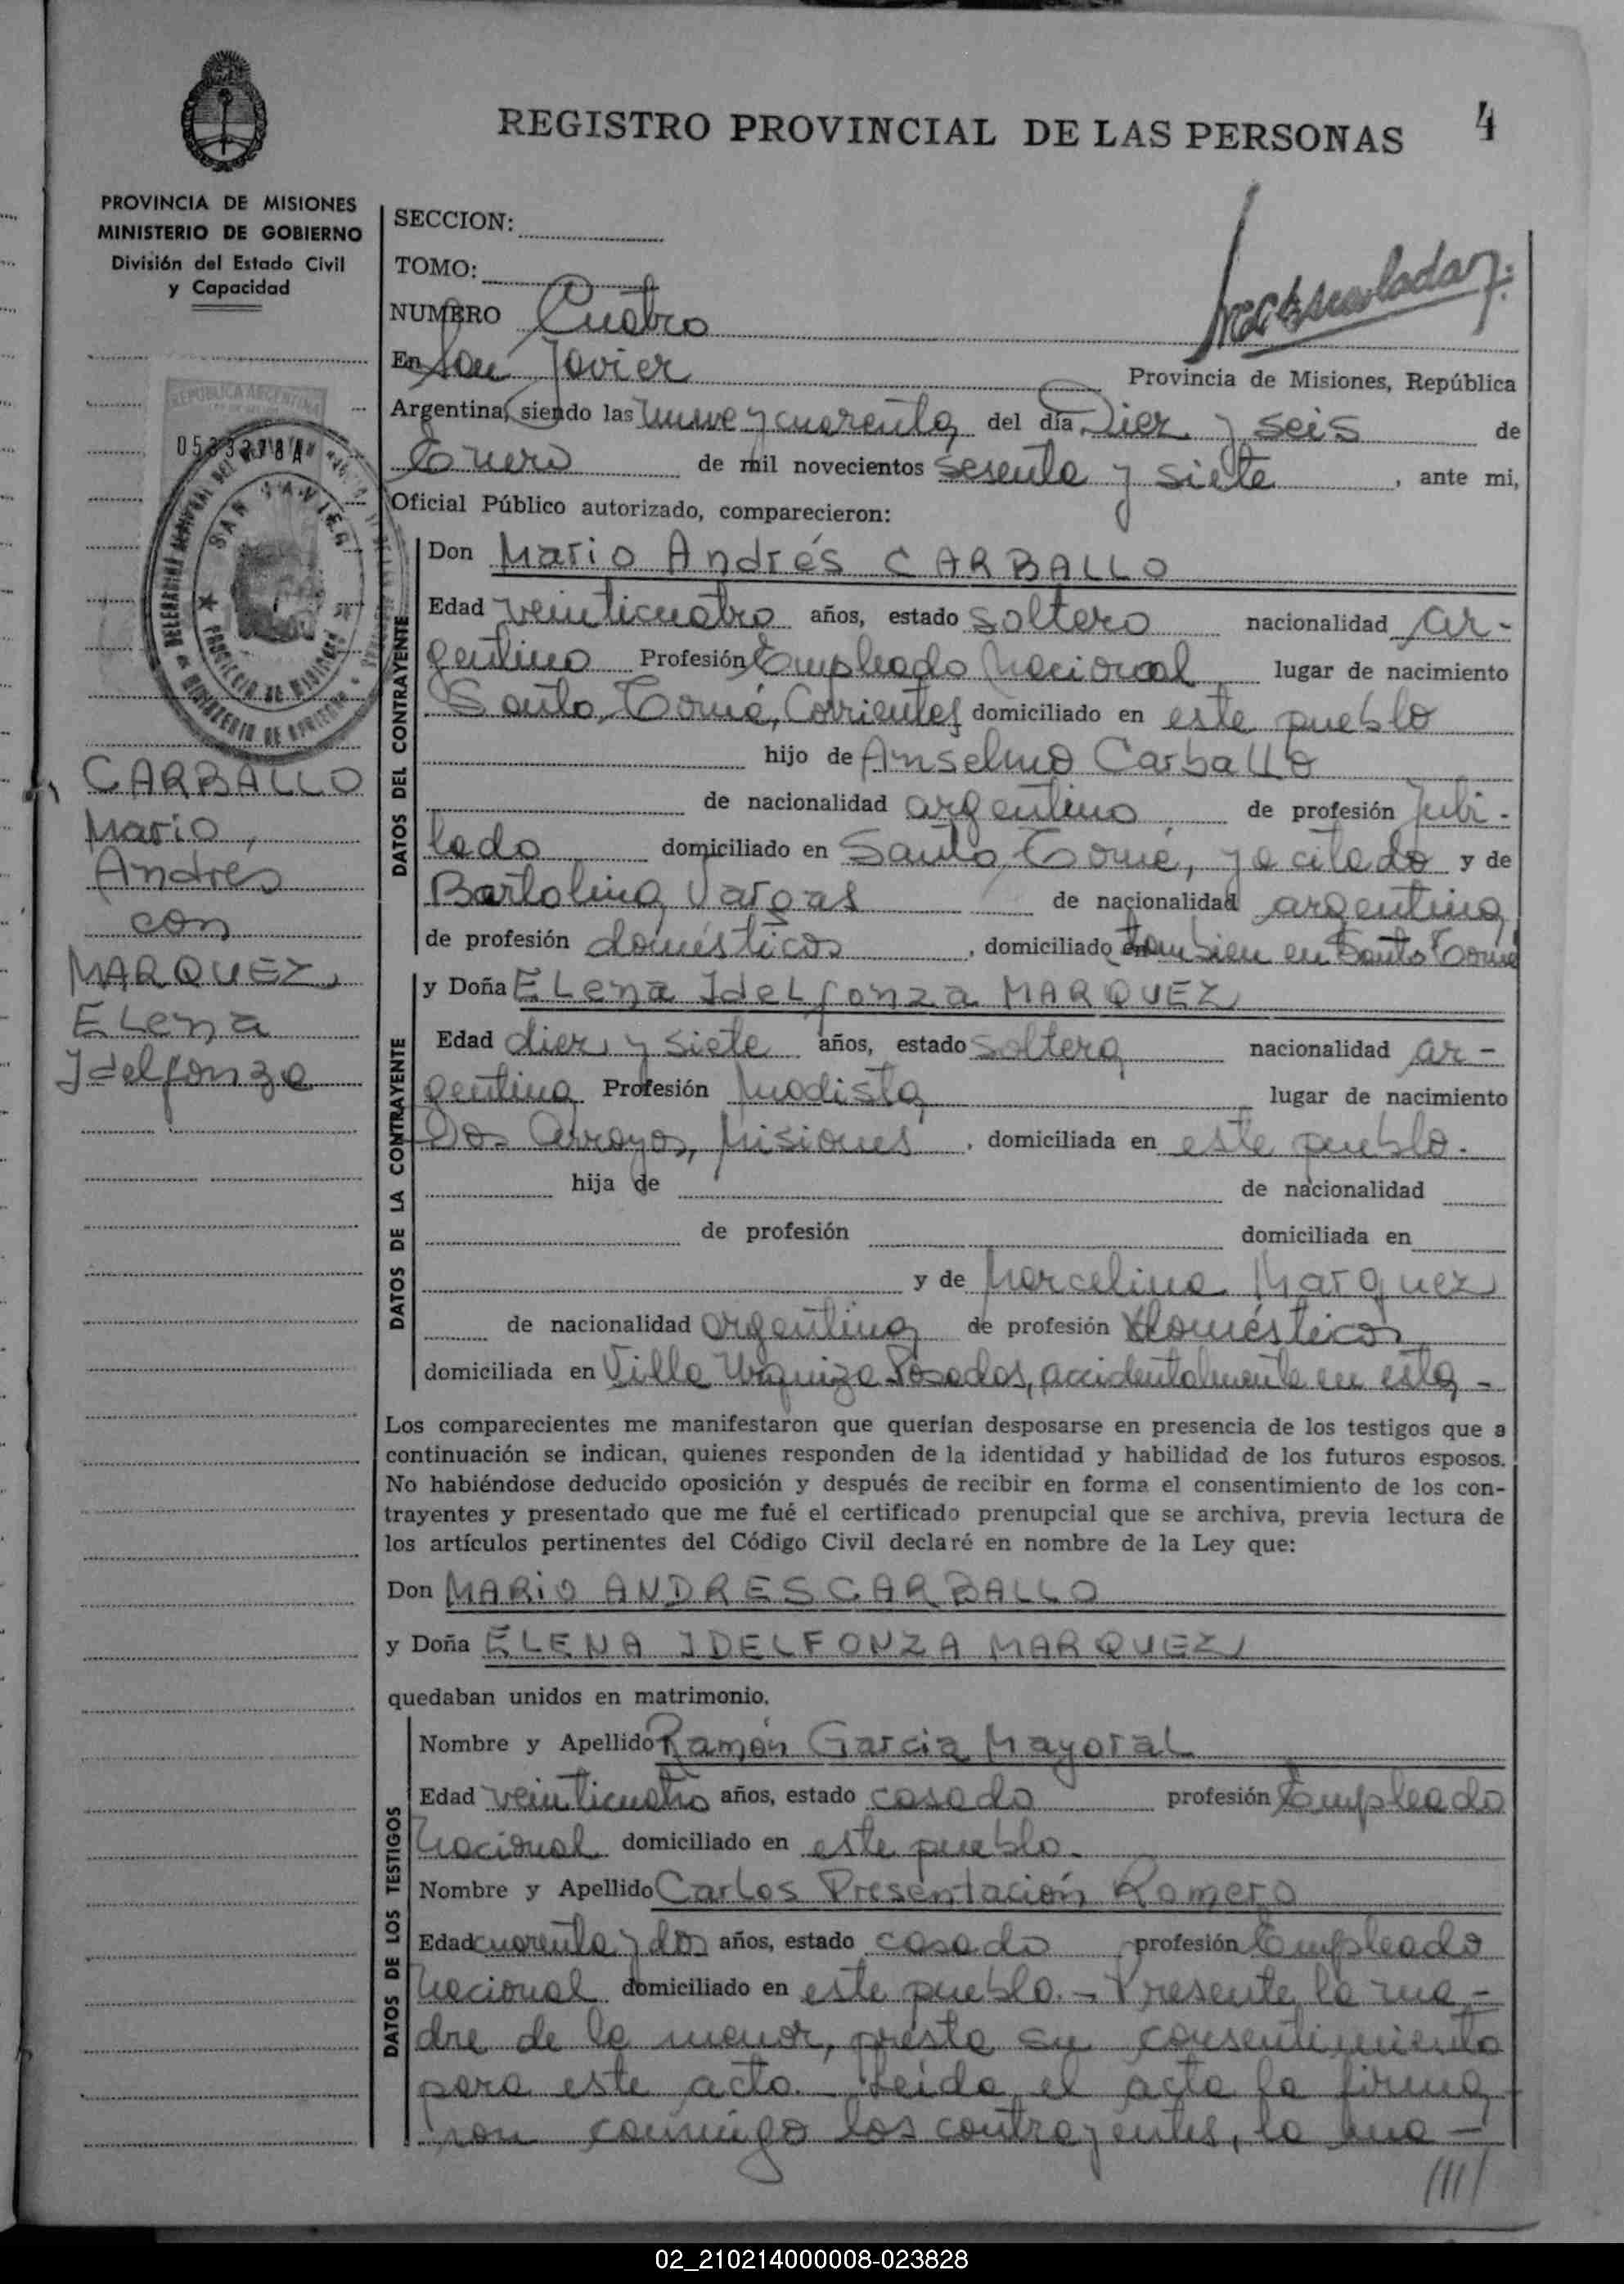 REGISTRO PROVINCIAL DE LAS PERSONAS
4
PROVINCIA DE MISIONES
MINISTERIO DE GOBIERNO
División del Estado Civil
y Capacidad
REPUBLICA ARGENTINA
SAN JAVIER
PROVINCIA DE MISIONES
CARBALLO
Mario,
Andrés
con
MARQUEZ,
Elena
Idelfonza
SECCION:
TOMO:
NUMERO Cuatro
En San Javier Provincia de Misiones, República
Argentina, siendo las nueve y cuarenta del día Diez y seis de
Enero de mil novecientos sesenta y siete, ante mi,
Oficial Público autorizado, comparecieron:
DATOS DEL CONTRAYENTE
Don Mario Andrés CARBALLO
Edad veinticuatro años, estado soltero nacionalidad ar-
gentino Profesión Empleado Nacional lugar de nacimiento
Santo Tomé, Corrientes domiciliado en este pueblo
hijo de Anselmo Carballo
de nacionalidad argentino de profesión Jubi-
lado domiciliado en Santo Tomé, ya citado y de
Bartolina Vargas de nacionalidad argentina
de profesión domésticos, domiciliado en tambien en Santo Tomé
DATOS DE LA CONTRAYENTE
y Doña Elena Idelfonza MARQUEZ
Edad diez y siete años, estado soltera nacionalidad ar-
gentina Profesión Modista lugar de nacimiento
Dos Arroyos, Misiones, domiciliada en este pueblo.
hija de de nacionalidad
de profesión domiciliada en
y de Marcelina Marquez
de nacionalidad argentina de profesión domésticos
domiciliada en Villa Urquiza Posadas, accidentalmente en esta-
Los comparecientes me manifestaron que querían desposarse en presencia de los testigos que a
continuación se indican, quienes responden de la identidad y habilidad de los futuros esposos.
No habiéndose deducido oposición y después de recibir en forma el consentimiento de los con-
trayentes y presentado que me fué el certificado prenupcial que se archiva, previa lectura de
los artículos pertinentes del Código Civil declaré en nombre de la Ley que:
Don MARIO ANDRES CARBALLO
y Doña ELENA IDELFONZA MARQUEZ
quedaban unidos en matrimonio.
DATOS DE LOS TESTIGOS
Nombre y Apellido Ramón Garcia Mayoral
Edad veinticuatro años, estado casado profesión Empleado
Nacional domiciliado en este pueblo.
Nombre y Apellido Carlos Presentación Romero
Edad cuarenta y dos años, estado casado profesión Empleado
Nacional domiciliado en este pueblo.- Presente la ma-
dre de la menor, presta su consentimiento
para este acto. Leida el acta la firma
ron conmigo los contrayentes, la ma-
////
02_210214000008-023828